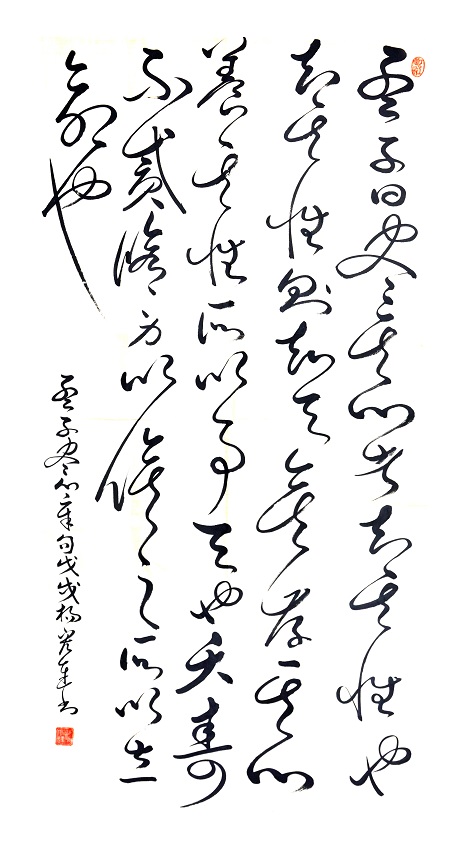 孟子曰盡其心者知其性也
知其性則知天矣存其心
養其性所以事天也夭壽
不貳修身以俟之所以立
命也
孟子盡心章句戊戌楊書